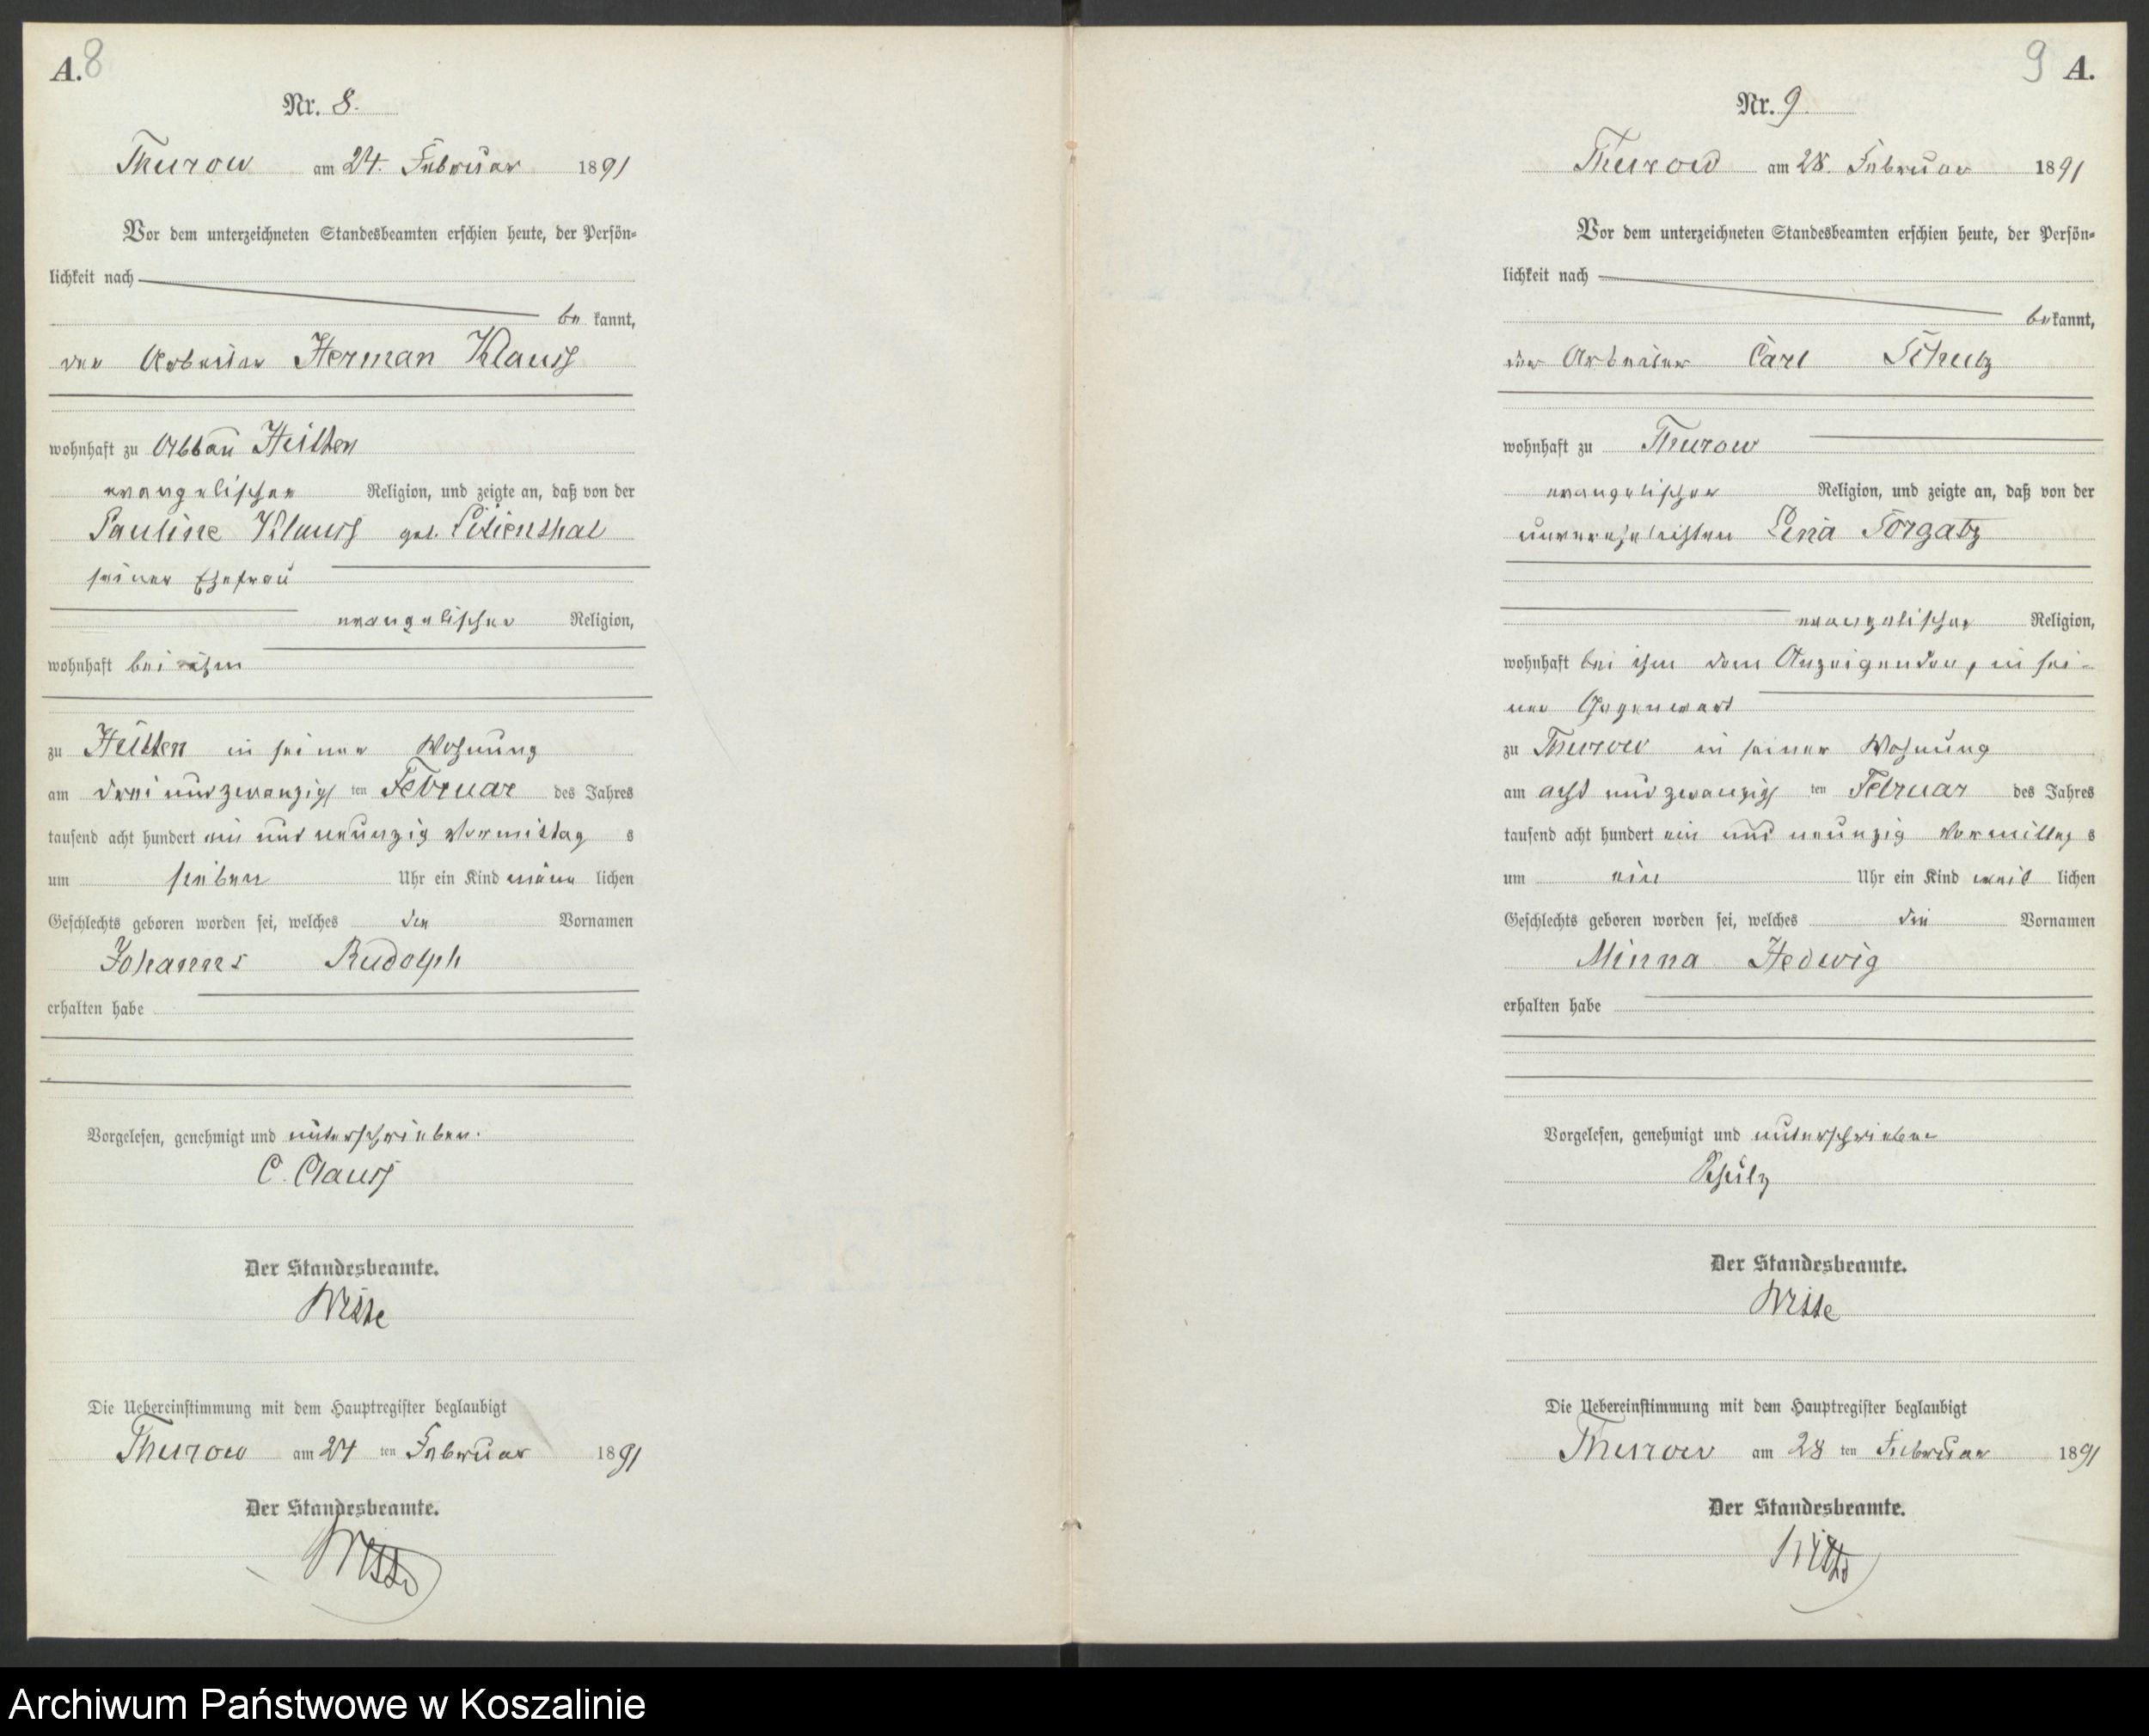 A. 8
Nr. 8.
Thurow am 24. Februar 1891
Vor dem unterzeichneten Standesbeamten erschien heute, der Persön-
lichkeit nach
be kannt,
der Arbeiter Herman Klauss
wohnhaft zu Abbau
evangelischer Religion, und zeigte an, daß von der
Pauline Klauss geb. Lilienthal
seiner Ehefrau
evangelischer Religion,
wohnhaft bei ihm
zu in seiner Wohnung
am drei und zwanzigsten Februar des Jahres
tausend acht hundert ein und neunzig Vormittag s
um sieben Uhr ein Kind männ lichen
Geschlechts geboren worden sei, welches den Vornamen
Johannes Rudolph
erhalten habe
Vorgelesen, genehmigt und unterschrieben.
C. Clauss
Der Standesbeamte.
Witte
Die Uebereinstimmung mit dem Hauptregister beglaubigt
Thurow am 24 ten Februar 1891
Der Standesbeamte.
Witte
9 A.
Nr. 9.
Thurow am 28. Februar 1891
Vor dem unterzeichneten Standesbeamten erschien heute, der Persön-
lichkeit nach
be kannt,
der Arbeiter Carl Schulz
wohnhaft zu Thurow
evangelischer Religion, und zeigte an, daß von der
unverehelichten Lina Torgatz
evangelischer Religion,
wohnhaft bei ihm dem Anzeigenden, in sei-
ner Gegenwart
zu Thurow in seiner Wohnung
am acht und zwanzigsten Februar des Jahres
tausend acht hundert ein und neunzig Vormittag s
um ein Uhr ein Kind weib lichen
Geschlechts geboren worden sei, welches die Vornamen
Minna Hedwig
erhalten habe
Vorgelesen, genehmigt und unterschrieben
Schulz
Der Standesbeamte.
Witte
Die Uebereinstimmung mit dem Hauptregister beglaubigt
Thurow am 28 ten Februar 1891
Der Standesbeamte.
Witte
Archiwum Państwowe w Koszalinie